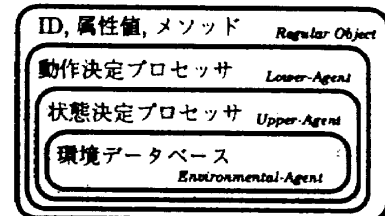 ID, 属性値, メソッド Regular Object
動作決定プロセッサ Lower-Agent
状態決定プロセッサ Upper-Agent
環境データベース
Environmental-Agent